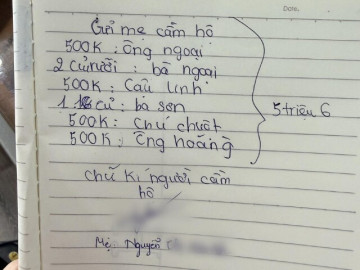 Date.
Gửi mẹ cầm hộ
500K : Ông ngoại
2 củ rưỡi : bà ngoại
500K : Cậu Linh
1 củ : bà sơn
500K : Chú chuột
500K : Ông hoàng
5 triệu 6
chữ kí người cầm
hộ
Mẹ: Nguyễn